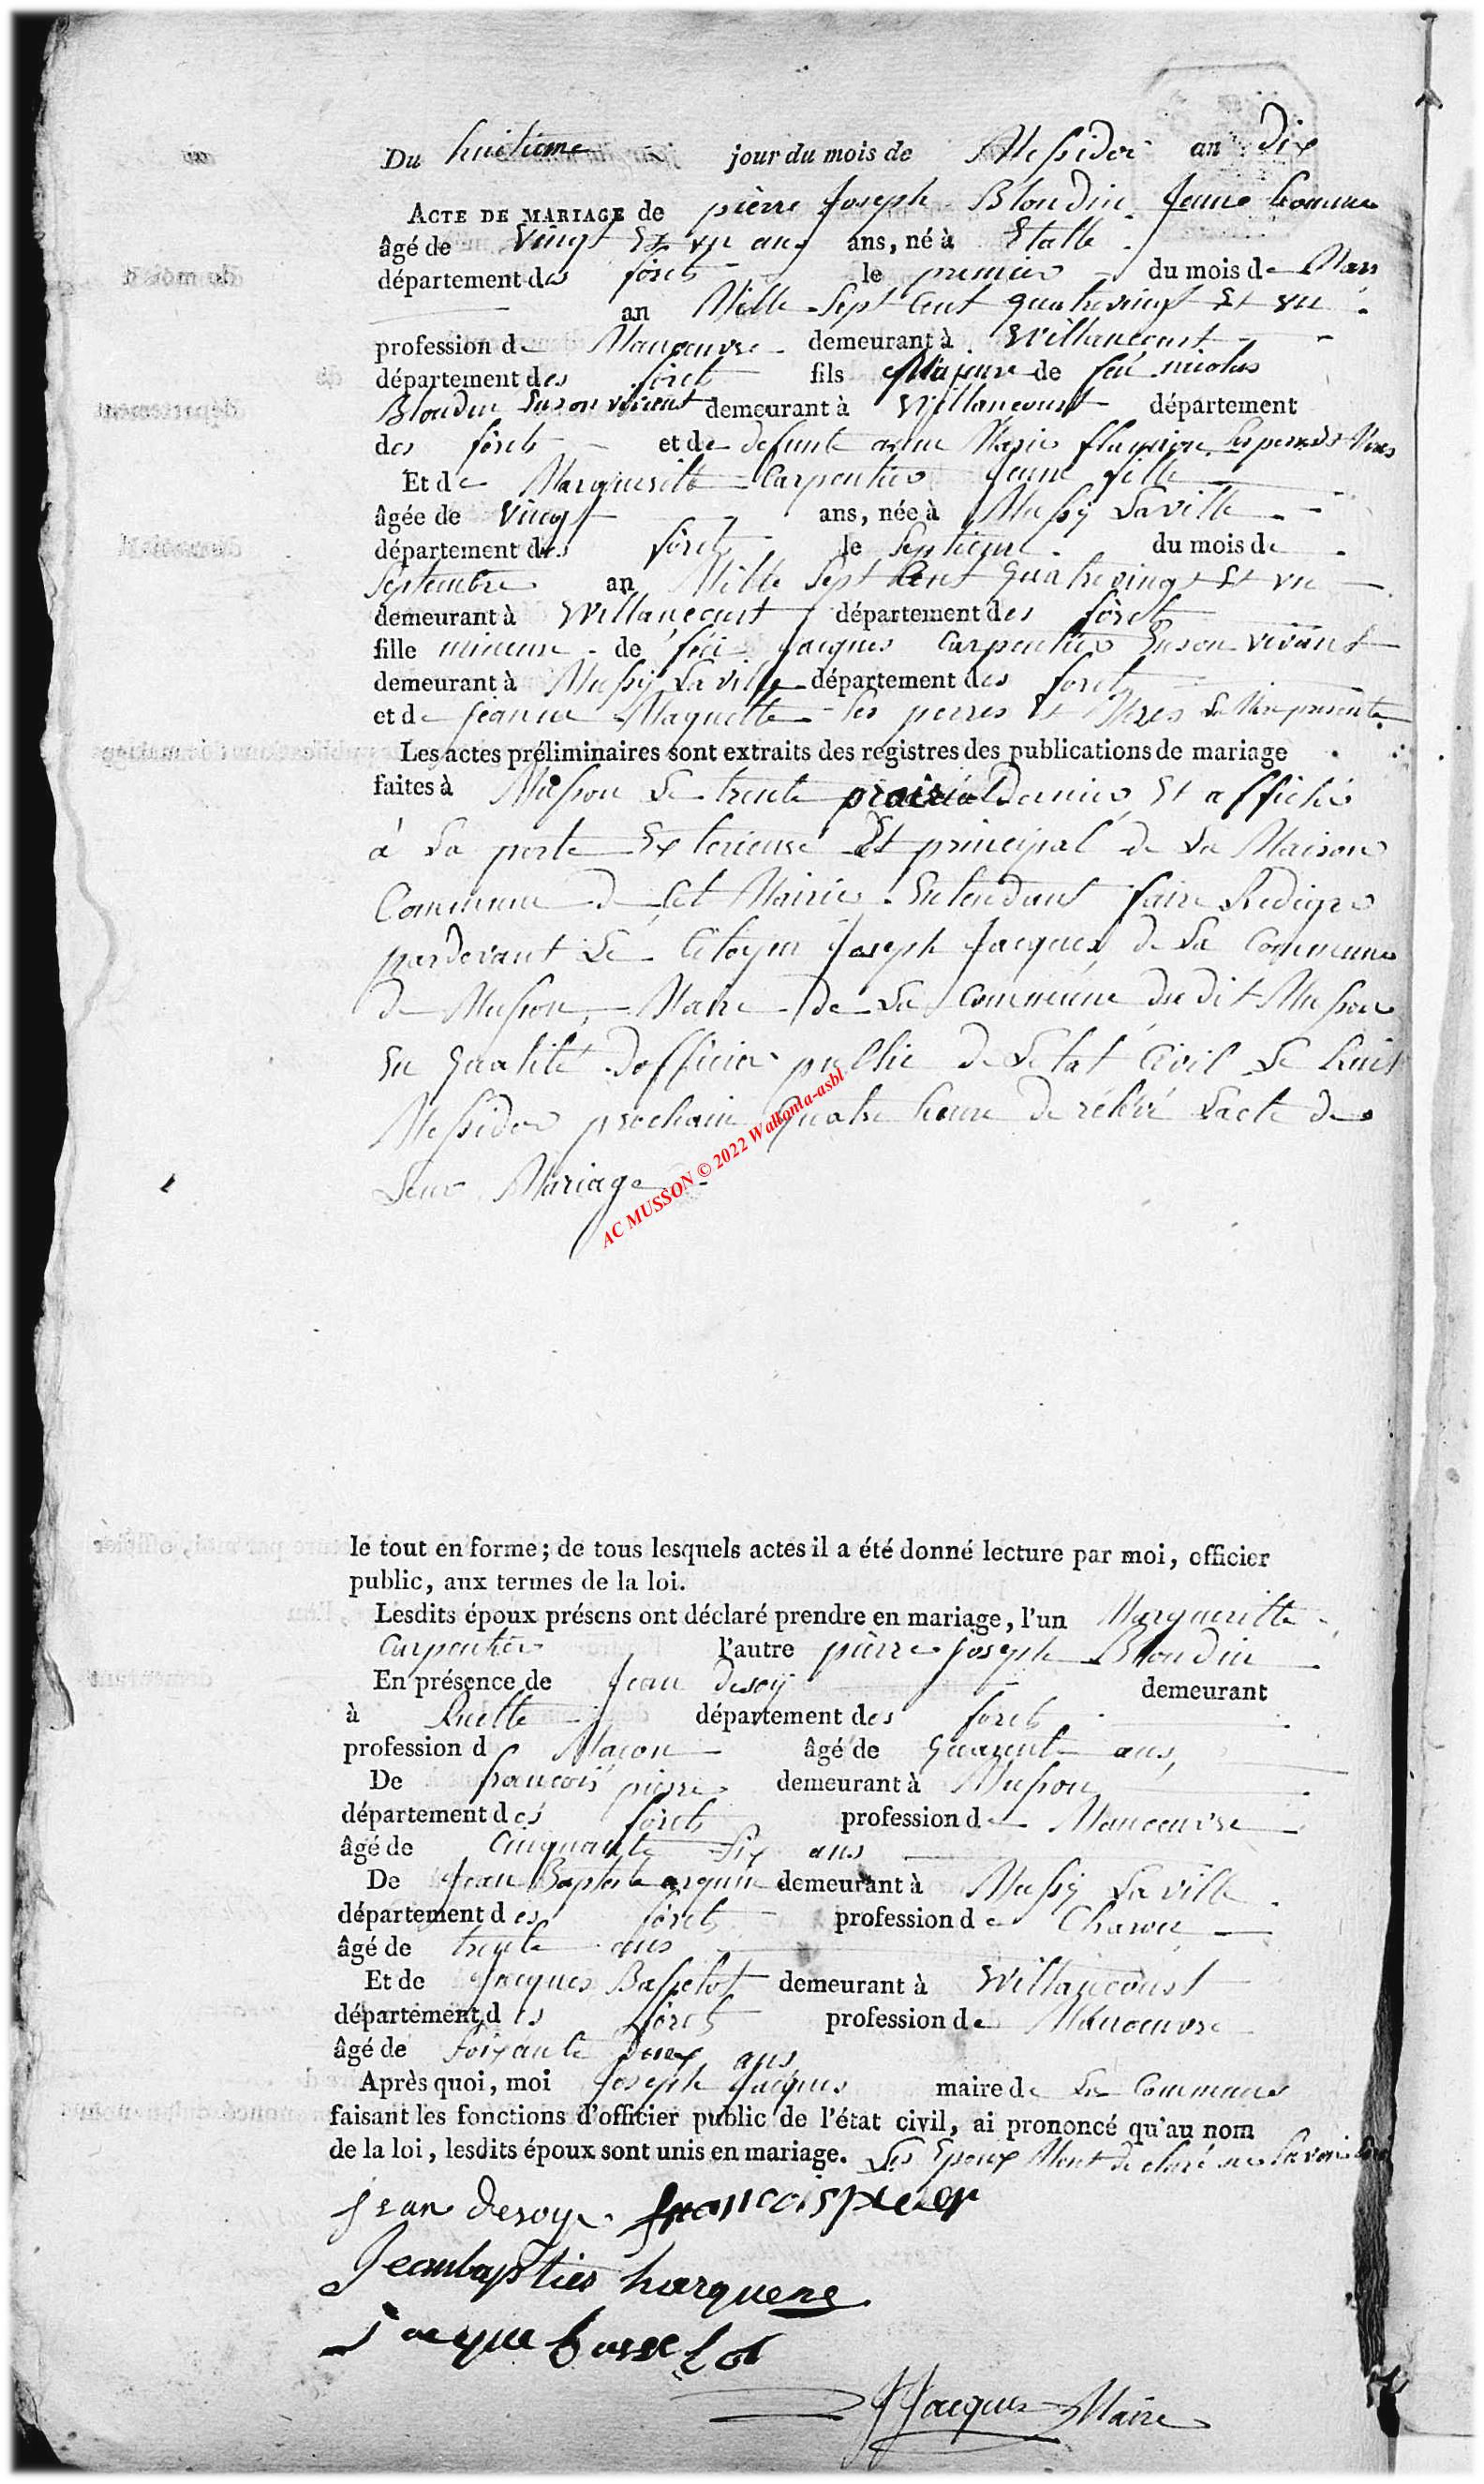 Du huitieme jour du mois de Messidor an dix
ACTE DE MARIAGE de pièrre Joseph Blondin Jeune homme
âgé de Vingt Et vn ans ans, né à Etalle
département des forets le premier du mois de Mars
an Mille Sept Cent quatrevingt Et vn
profession de Manoeuvre demeurant à Willancourt
département des forets fils Majeure de feu nicolas
Blondin Enson vivant demeurant à Willancourt département
des forets et de defunte anne Marie
Et de Margueritte Carpentier Jeune fille
âgée de Vingt ans, née à Mussÿ Laville
département des forets le Septieme du mois de
Septembre an Mille Sept Cent quatrevingt Et vn
demeurant à Willancourt département des forets
fille mineure de feu Jacques Carpentier Enson vivant
demeurant à Mussÿ La ville département des forets
et de jeanne Maquette Ses perres Et Meres La Mere presente
Les actes préliminaires sont extraits des registres des publications de mariage
faites à Musson Le trente prairial Dernier Et affiché
à La porte Exterieure Et principal de La Maison
Commune de Cet Mairie Entendant faire Rediger
pardevant Le Citoyen Joseph Jacques de La Commune
de Musson, Maire de La Commune du dit Musson
En qualité dofficier public de Letat Civil Le huit
Messidor prochain quatre heure de rélévé Lacte de
Leur Mariage
AC MUSSON © 2022 Wallonia-asbl
le tout en forme; de tous lesquels actes il a été donné lecture par moi, officier
public, aux termes de la loi.
Lesdits époux présens ont déclaré prendre en mariage, l'un Margueritte
Carpentier l'autre pièrre joseph Blondin
En présence de Jean Desoÿ demeurant
à Ruette département des forets
profession d Maçon âgé de quarente ans,
De francois pierre demeurant à Musson
département des forets profession de Manoeuvre
âgé de Cinquante Six ans
De Jean Baptiste arquin demeurant à Mussÿ La ville
département des forets profession de Charon
âgé de trente ans
Et de Jacques Basselot demeurant à Willancourt
département des forets profession de Manoeuvre
âgé de soixante Deux ans
Après quoi, moi Joseph Jacques maire de La Commune
faisant les fonctions d'officier public de l'état civil, ai prononcé qu'au nom
de la loi, lesdits époux sont unis en mariage. Les Epoux Mont declaré ne Savoir
jean Desoye francois pierer
Jeanbapties harquene
jacque basselot
JJacques Maire